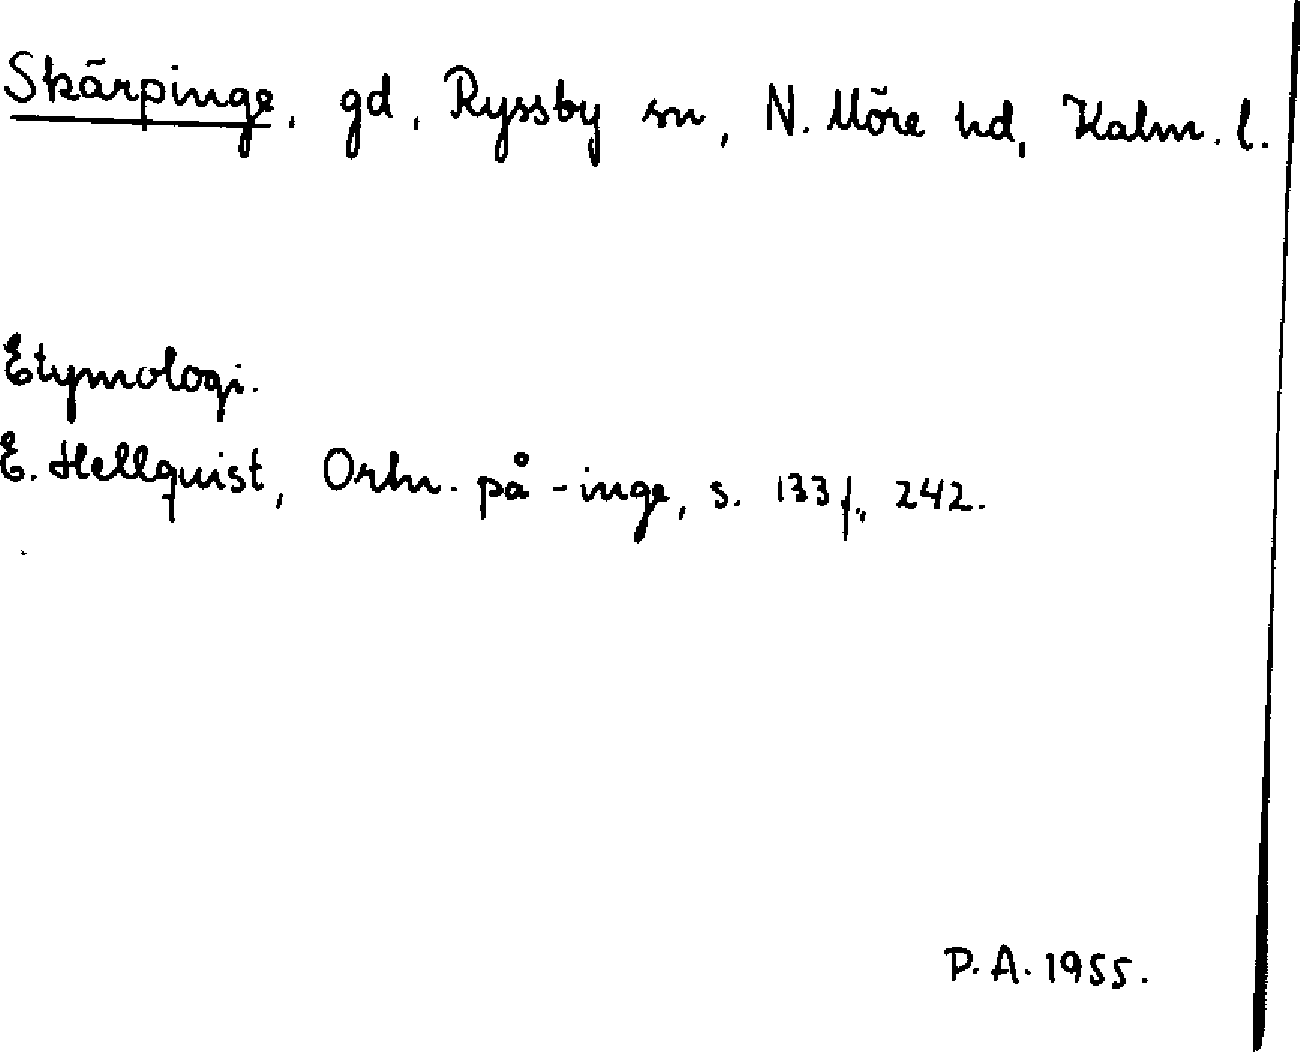 Skärpinge, gd, Ryssby sn, N. Möre hd, Kalm. l.
Etymologi.
E. Hellquist, Ortn. på -inge, s. 133 f., 242.
P. A. 1955.